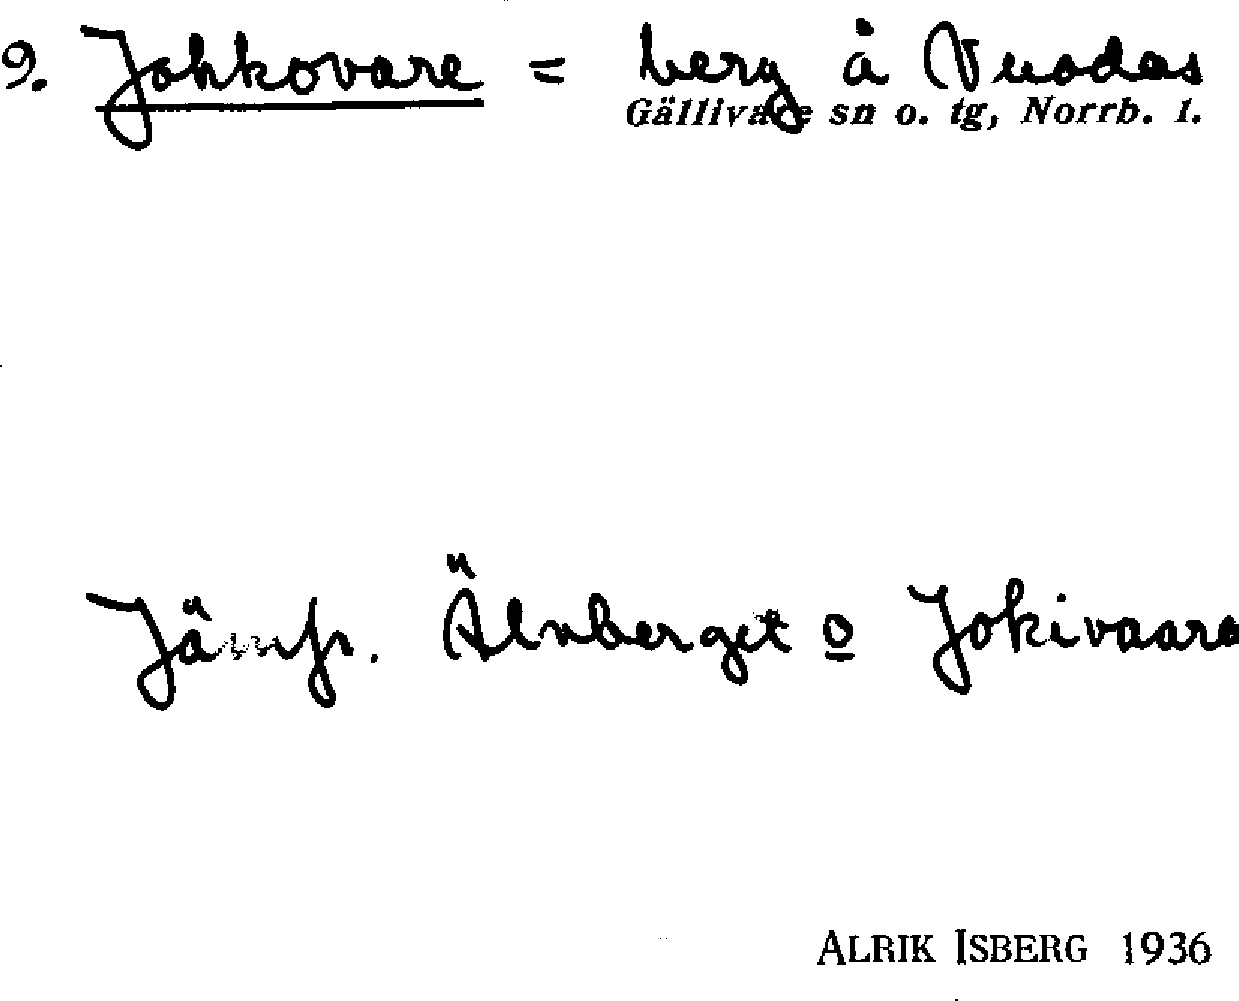 9. Johkovare = berg å Vuodas
Gällivare sn o. tg, Norrb. l.
Jämfr. Älvberget o Jokivaara
ALRIK ISBERG 1936